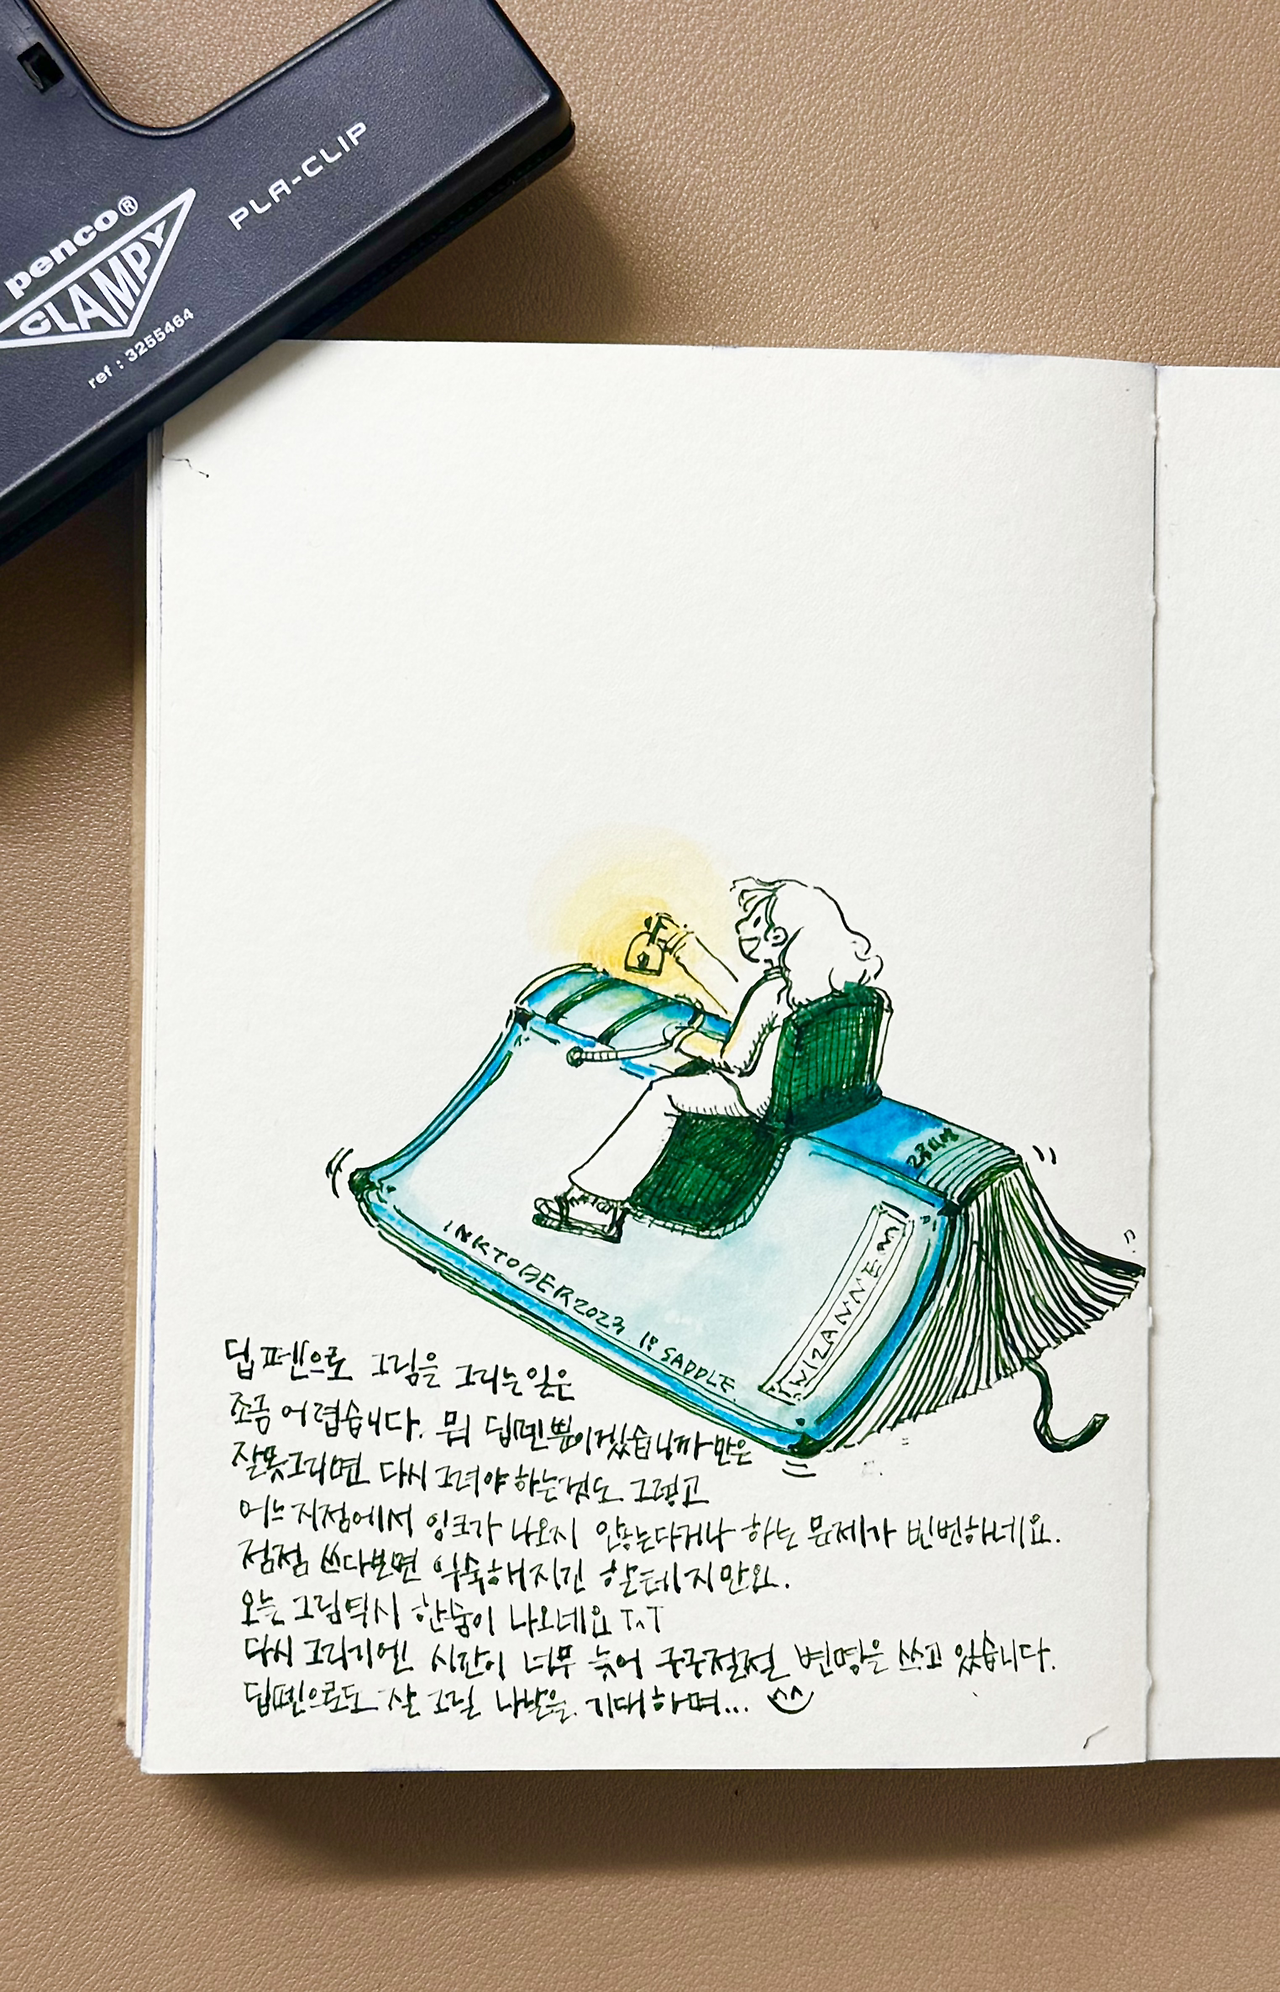 penco®
CLAMPY
ref : 3255464
PLA-CLIP
INKTOBER2023 18 SADDLE.
WIZANNE M
딥펜으로 그림을 그리는 일은
조금 어렵습니다. 뭐 딥펜뿐이겠습니까만은
잘못그리면 다시 그려야 하는것도 그렇고
어느지점에서 잉크가 나오지 않는다거나 하는 문제가 빈번하네요.
점점 쓰다보면 익숙해지긴 할테지만요.
오늘 그림역시 한숨이 나오네요 T^T
다시 그리기엔 시간이 너무 늦어 구구절절 변명을 쓰고 있습니다.
딥펜으로도 잘 그릴 나날을 기대하며... ^^